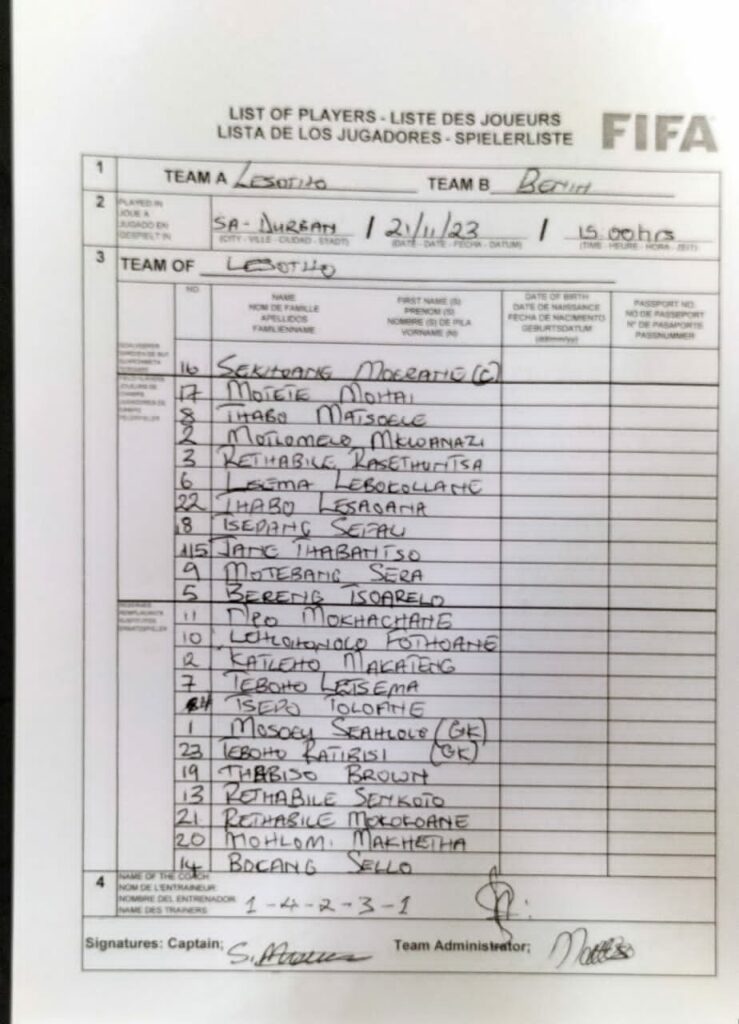 LIST OF PLAYERS - LISTE DES JOUEURS
LISTA DE LOS JUGADORES - SPIELERLISTE
FIFA
1 TEAM A LESOTHO TEAM B BENIN
2 PLAYED IN
JOUE A
JUGADO EN
GESPIELT IN
SA - DURBAN / 21/11/23 / 15:00hrs
(CITY - VILLE - CIUDAD - STADT) (DATE - DATE - FECHA - DATUM) (TIME - HEURE - HORA - ZEIT)
3 TEAM OF LESOTHO
NO
NAME
NOM DE FAMILLE
APELLIDOS
FAMILIENNAME
FIRST NAME (S)
PRENOM (S)
NOMBRE (S) DE PILA
VORNAME (N)
DATE OF BIRTH
DATE DE NAISSANCE
FECHA DE NACIMIENTO
GEBURTSDATUM
(dd/mm/yy)
PASSPORT NO.
NO DE PASSEPORT
N° DE PASAPORTE
PASSNUMMER
16 SEKHOANE MOERANE (C)
17 MOTETE MOHAI
8 THABO MATSOELE
2 MOTLOMELO MKWANAZI
3 RETHABILE RASETHUNTSA
6 LISEMA LEBOKOLLANE
22 THABO LESAOANA
18 TSEPANG SEFALI
15 JANE THABANTSO
9 MOTEBANG SERA
5 BERENG TSOARELO
11 NPO MOKHACHANE
10 LEHLOHONOLO FOTHOANE
12 KATLEHO MAKATENG
7 TEBOHO LETSEMA
4 TSEPO TOLOANE
1 MOSOEU SEAHLOLO (GK)
23 TEBOHO RATIBISI (GK)
19 THABISO BROWN
13 RETHABILE SENKOTO
21 RETHABILE MOKOKOANE
20 MOHLOMI MAKHETHA
14 BOCANG SELLO
4 NAME OF THE COACH
NOM DE L'ENTRAINEUR
NOMBRE DEL ENTRENADOR
NAME DES TRAINERS
1-4-2-3-1
Signatures: Captain; Team Administrator;